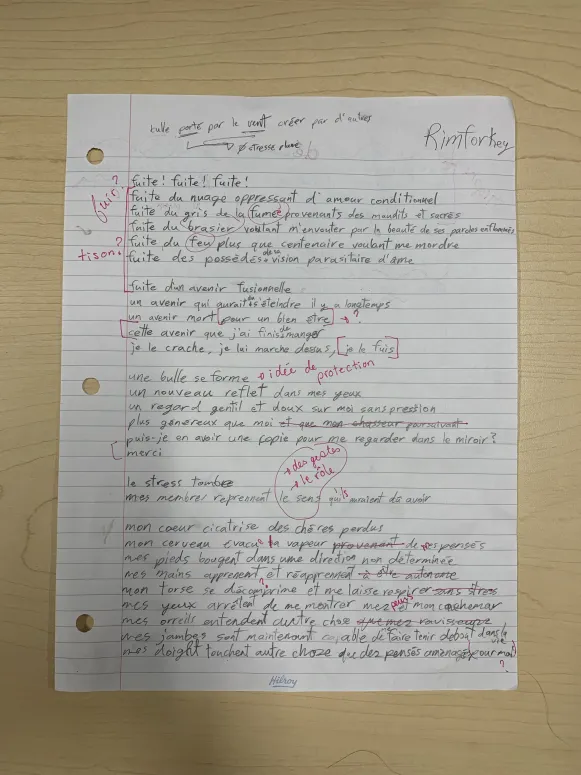 bulle porté par le vent créer par d'autres
Rimforkey
fuite! fuite! fuite!
fuir?
fuite du nuage oppressant d'amour conditionnel
fuite du gris de la fumée provenants des maudits et sacrés
fuite du brasier voulant m'envouter par la beauté de ses paroles
tison?
fuite du feu plus que centenaire voulant me mordre
fuite des possédés de la vision parasitaire d'âme
fuite d'un avenir fusionnelle
un avenir qui aurait dû s'éteindre il y a longtemps
un avenir mort pour un bien être → ?
cette avenir que j'ai finis de manger
je le crache, je lui marche dessus, je le fuis
une bulle se forme → idée de protection
un nouveau reflet dans mes yeux
un regard gentil et doux sur moi sans pression
plus généreux que moi et que mon chasseur poursuivant
puis-je en avoir une copie pour me regarder dans le miroir?
merci
→ des gestes
→ le rôle
le stress tombe
mes membres reprennent le sens qu'ils auraient dû avoir
mon coeur cicatrise des chères perdus
mon cerveau évacue la vapeur provenant de mes pensés
mes pieds bougent dans une direction non déterminée
mes mains apprennent et réapprennent à être autonome
mon torse se décomprime et me laisse respirer sans stress
mes yeux arrêtent de me montrer mes peurs et mon cauchemar
mes oreills entendent autre chose
mes jambes sont maintenant capable de faire tenir debout dans la vie
mes doight touchent autre choze que dez pensés aménagés pour moi
?
Hilroy